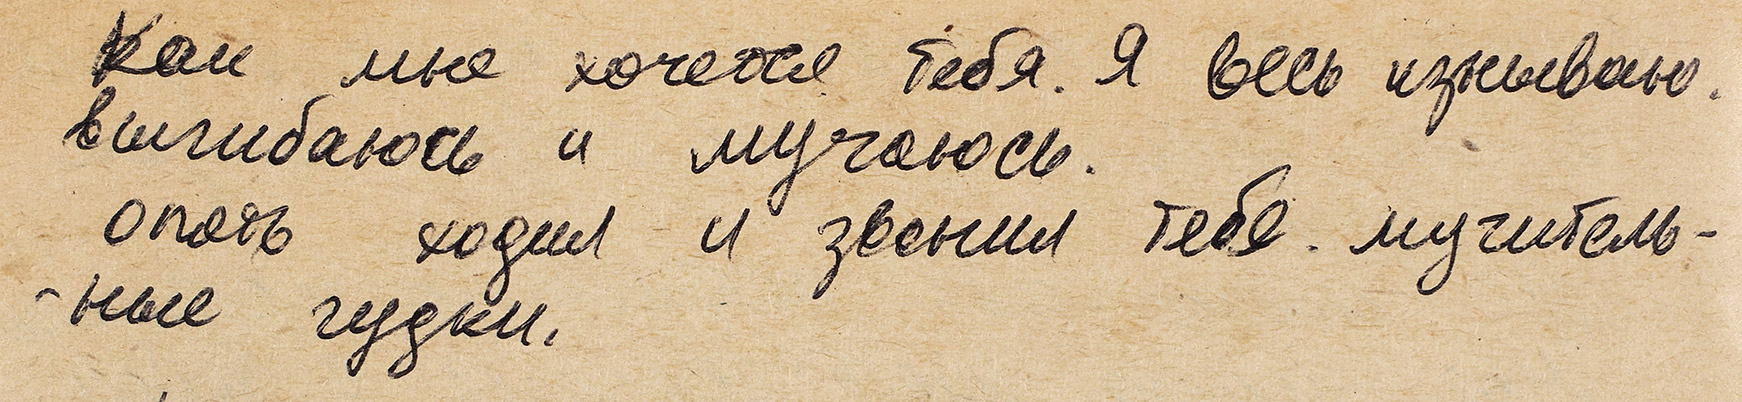 Как мне хочется тебя. Я весь изнываю.
выгибаюсь и мучаюсь.
опять ходил и звонил тебе. мучитель-
-ные гудки.